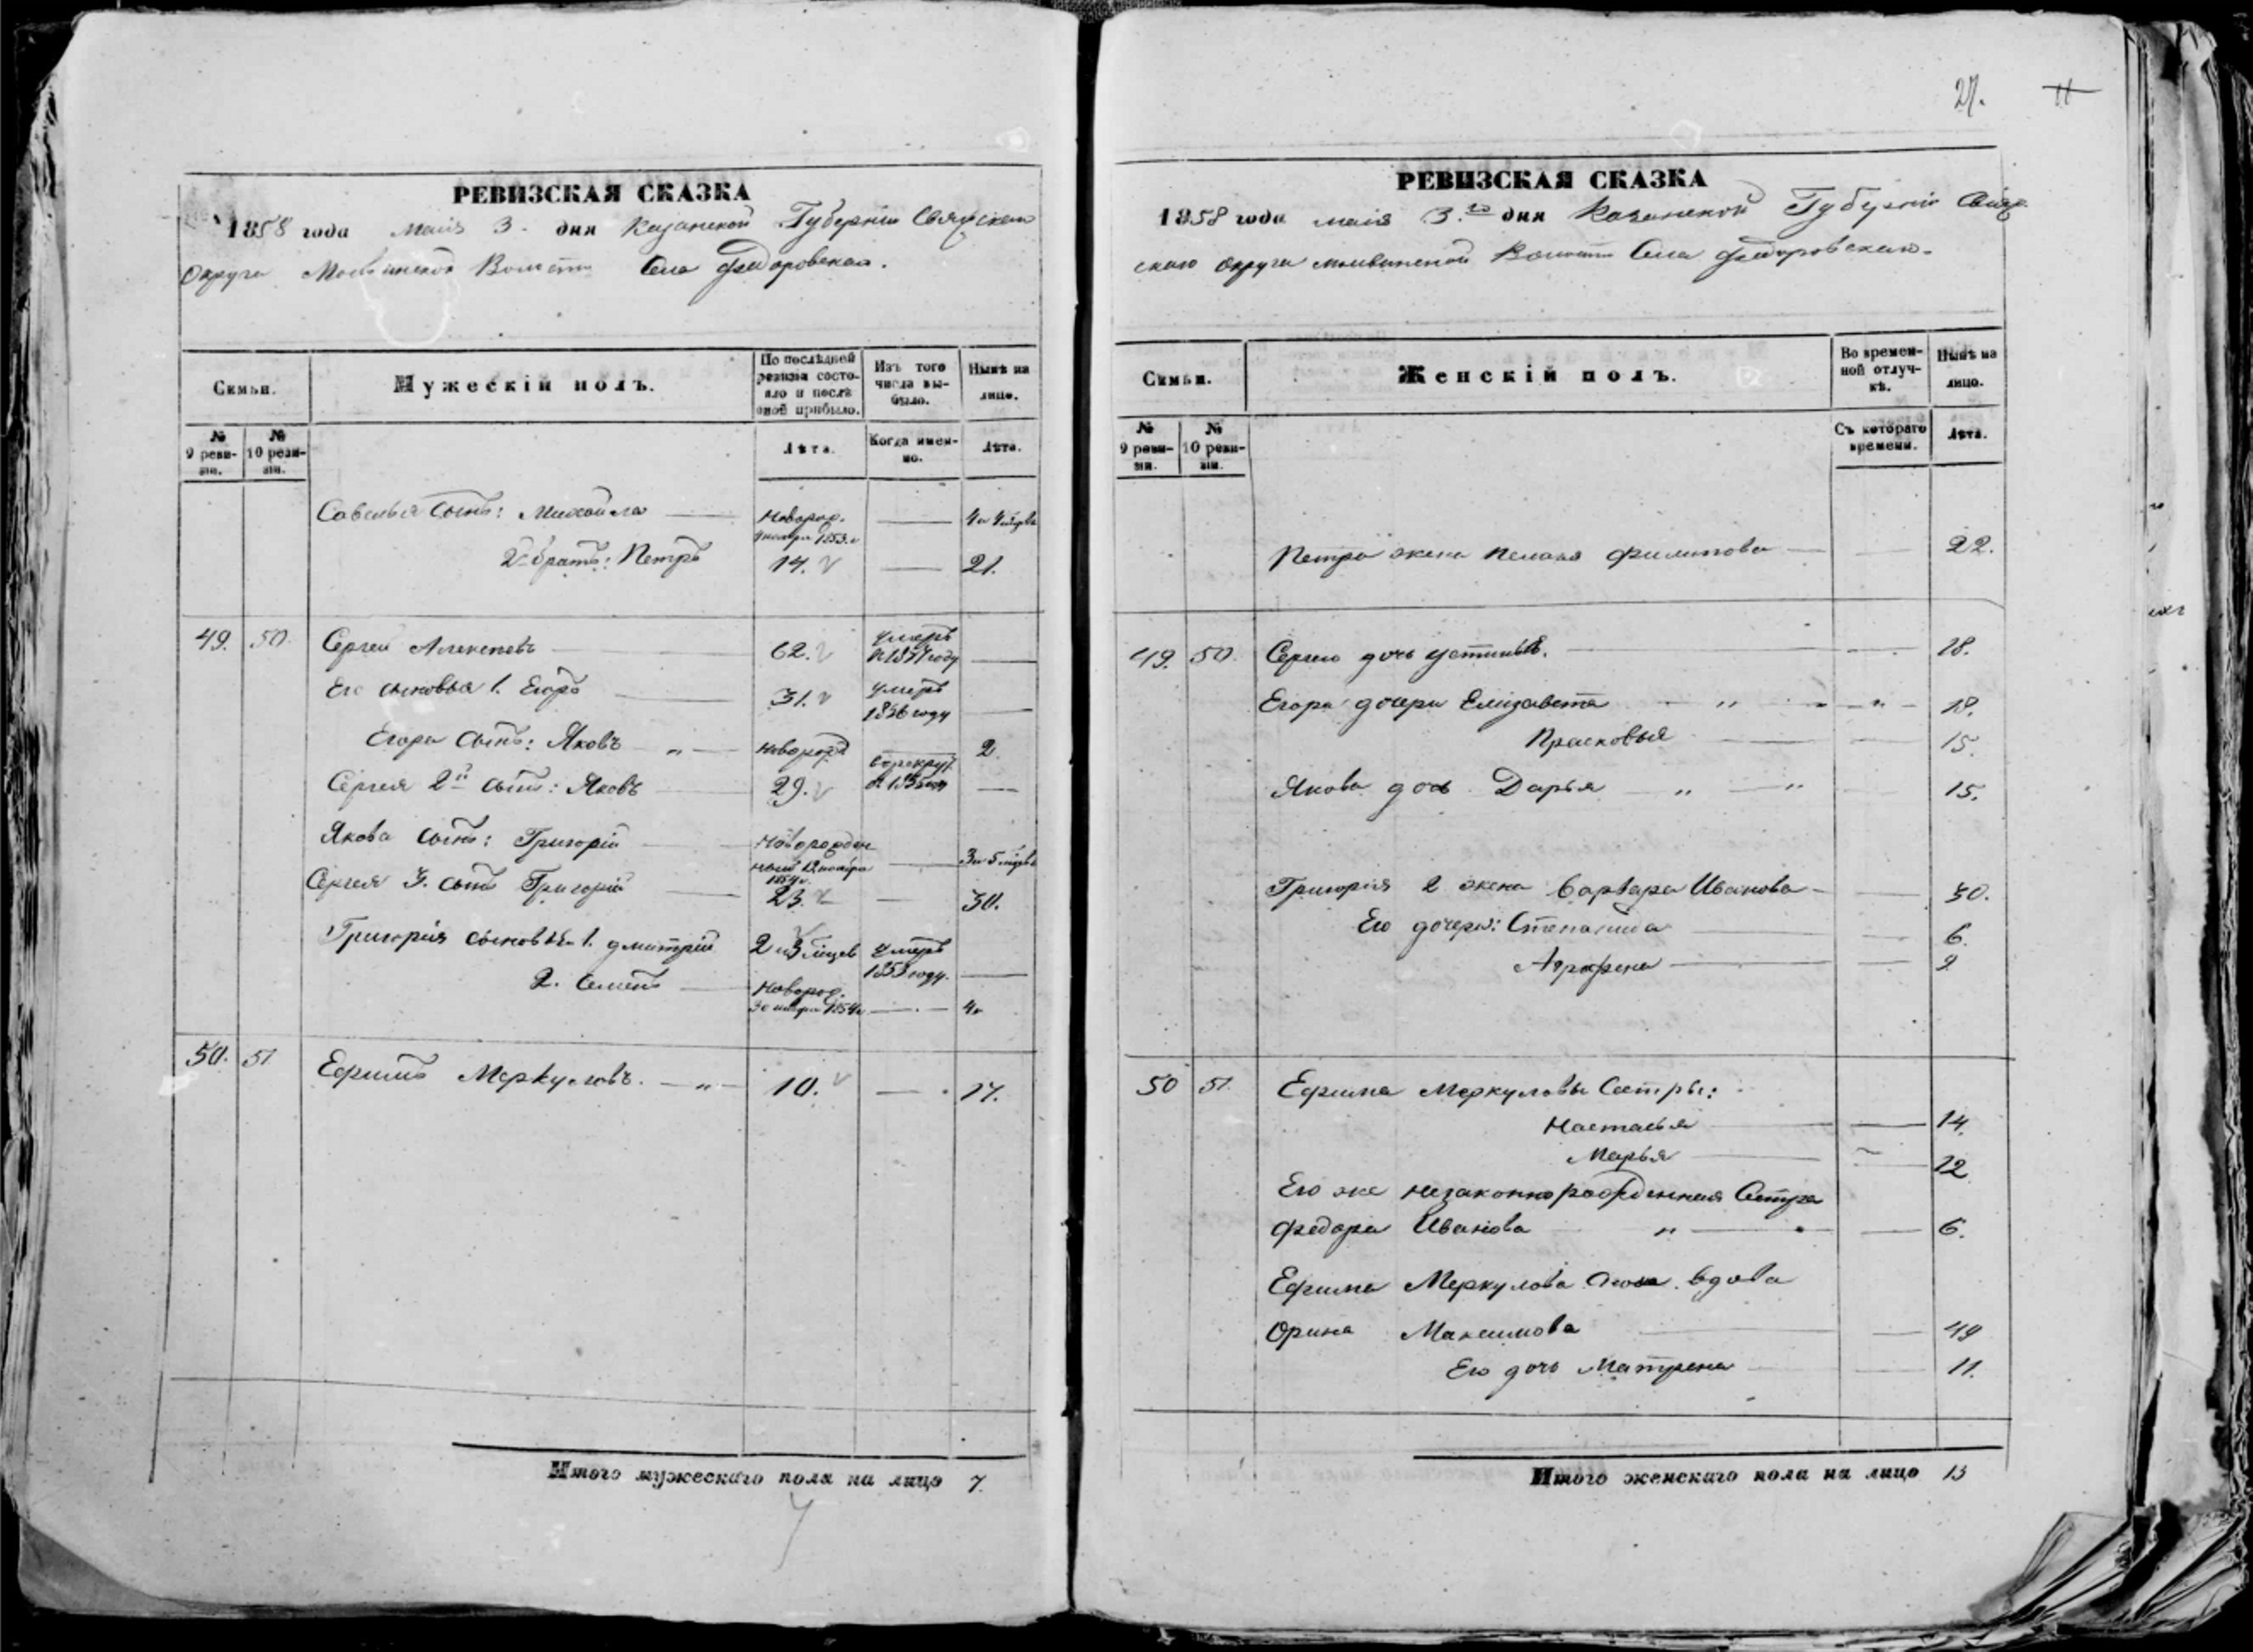 27. 11
РЕВИЗСКАЯ СКАЗКА
1858 года Маия 3. дня Казанской Губерніи Свіяжскаго
Округа Молвинской Волости Села Федоровскаго.
Семьи.
Мужескій полъ.
По послѣдней ревизіи состояло и послѣ оной прибыло.
Изъ того числа выбыло.
Нынѣ на лицо.
№ 9 ревизіи.
№ 10 ревизіи.
Лѣта.
Когда именно.
Лѣта.
Савелья сынъ: Михайла новорог. 1853. г 4 и 4
2й братъ: Петръ 14. 21.
49. 50. Сергей Алексеевъ 62. умеръ году
Его сыновья 1. Егоръ 31. умеръ 1856 году
Егора сынъ: Яковъ " 2
Сергея 2й сынъ: Яковъ 29.
Якова сынъ: Григорій новорожден ный 12 ноября 1854 г. 3 и 5
Сергея 3. сынъ Григорій 23. 30.
Григорія сыновья 1. дмитрій 2 и 3 умеръ 1853 году.
2. Семенъ новорог. 30 1854 г 4
50. 51 Ефимъ Меркуловъ. " 10. 17.
Итого мужескаго пола на лицо 7.
РЕВИЗСКАЯ СКАЗКА
1858 года маія 3.го дня Казанской Губерніи Свіяж
скаго Округа молвинской Волости Села федоровскаго.
Семьи.
Женскій полъ.
Во временной отлучкѣ.
Нынѣ на лицо.
№ 9 ревизіи.
№ 10 ревизіи.
Съ котораго времени.
Лѣта.
Петра жена Пелагя филипова 22.
49. 50. Сергея дочь устинья. 18.
Егора дочери Елизавета " " 18.
Прасковья 15.
Якова дочь Дарья " " 15.
Григорія 2 жена Варвара Иванова 30.
Его дочери: Степанида 6.
Аграфена 2
50 51. Ефима Меркуловы Сестры:
Настасья 14.
Марья 12
Его же незаконнорожденная Сестра
федора Иванова " 6.
Ефима Меркулова вдова
Орина Максимова 49
Его дочь Матрена 11.
Итого женскаго пола на лицо 13